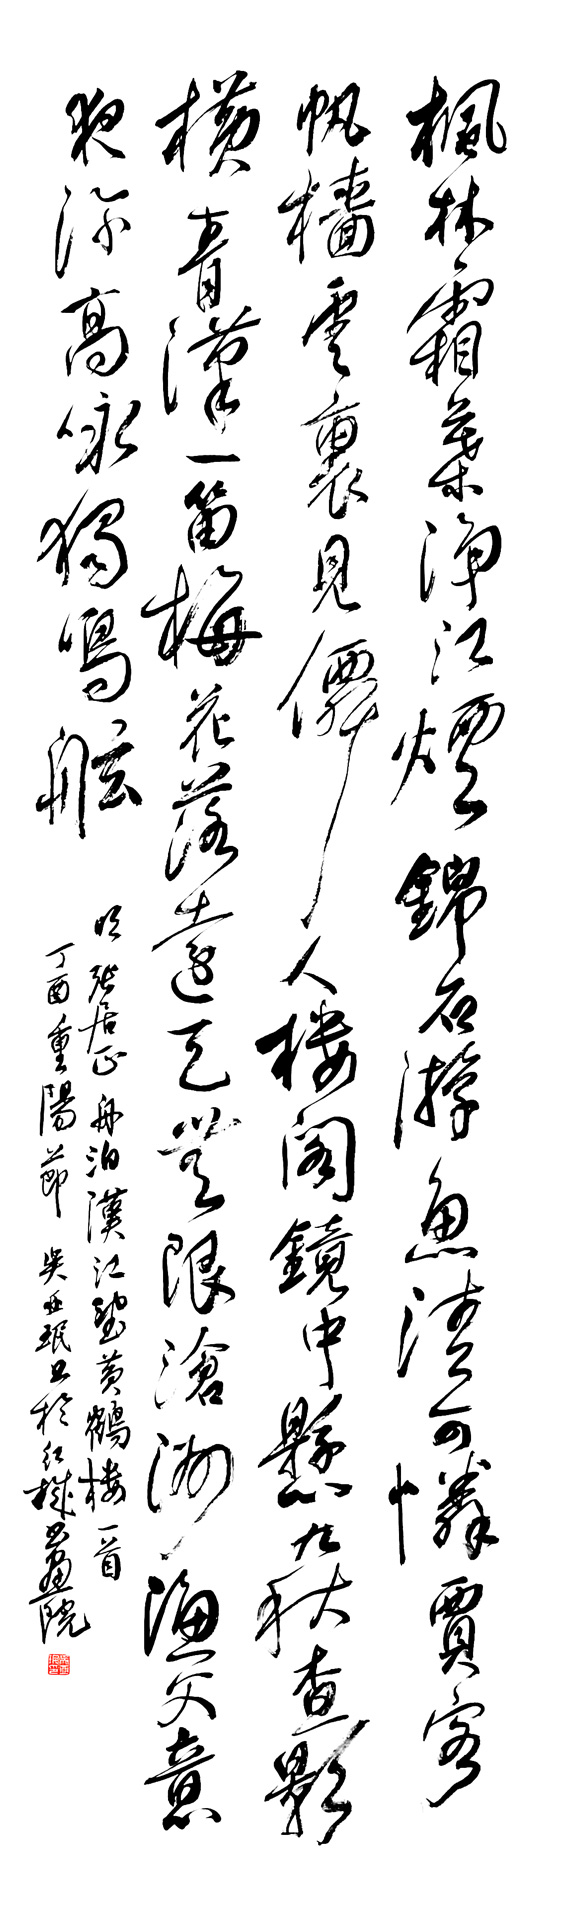 楓林霜葉淨江煙錦石游魚清可憐賈客
帆檣雲裏見僊人樓閣鏡中懸九秋查影
橫青漢一笛梅花落遠天無限滄洲漁父意
夜深高詠獨鳴舷
明張居正舟泊漢江望黃鶴樓一首
丁酉重陽節吳亞珉書於紅樹書畫院